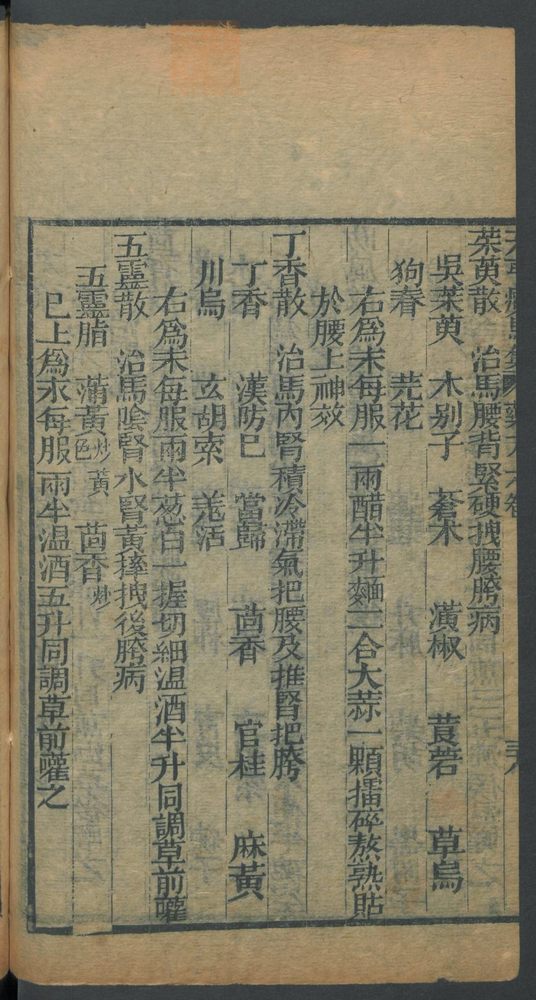 茱萸散　治馬腰背緊硬拽腰胯病
吳茱萸　木別子　蒼朮　漢椒　莨菪　草烏
狗春　芫花
右爲末每服一兩醋半升麵一合大蒜一顆擂碎熬熟貼
於腰上神效
丁香散　治馬內腎積冷滯氣把腰及推腎把胯
丁香　漢防巳　當歸　茴香　官桂　麻黃
川烏　玄胡索　羗活
右爲末每服兩半葱白一握切細溫酒半升同調草前嚾
五靈散　治馬陰腎水腎黃㩧拽後胯病
五靈脂　蒲黃炒黃色　茴香炒
巳上爲末每服兩半溫酒五升同調草前嚾之